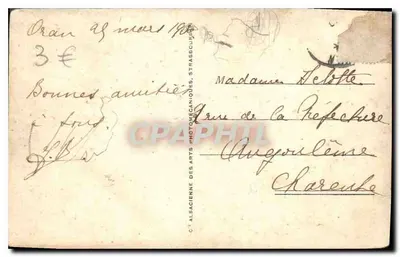 Oran 25 mars 190
3 €
Bonnes amitiés
à tous
CIE ALSACIENNE DES ARTS PHOTOMÉCANIQUES, STRASBOURG
Madame Delotte
rue de la Préfecture
Angoulême
Charente
CPAPHIL.com